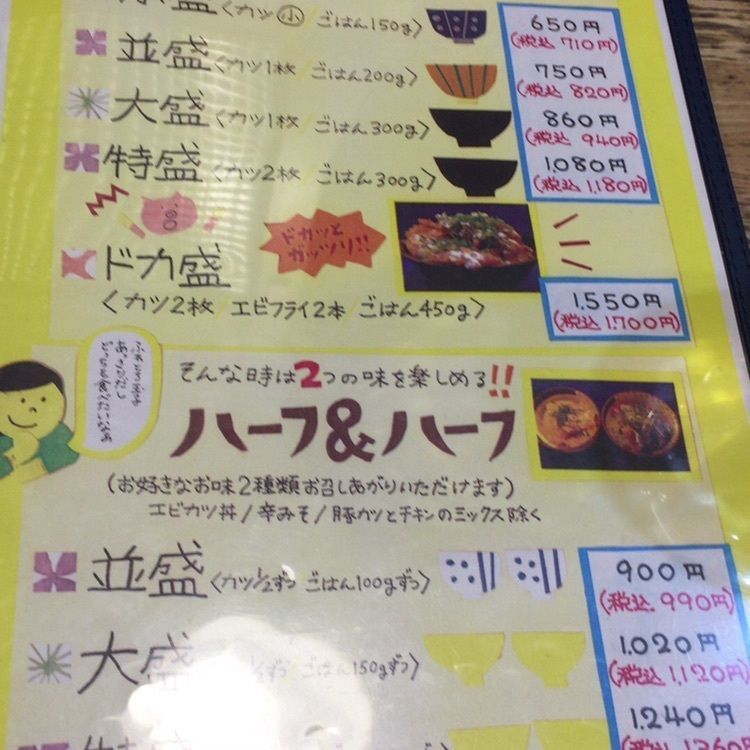 盛〈カツ小 ごはん150g〉 650円
(税込 710円)
並盛〈カツ1枚 ごはん200g〉 750円
(税込 820円)
大盛〈カツ1枚 ごはん300g〉 860円
(税込 940円)
特盛〈カツ2枚 ごはん300g〉 1,080円
(税込 1,180円)
ドカッと
ガッツリ!!
ドカ盛
〈カツ2枚 エビフライ2本 ごはん450g〉 1,550円
(税込 1,700円)
そんな時は2つの味を楽しめる!!
ハーフ&ハーフ
(お好きなお味2種類お召しあがりいただけます)
エビカツ丼/辛みそ/豚カツとチキンのミックス除く
並盛〈カツ1/2ずつ ごはん100gずつ〉 900円
(税込 990円)
大盛 1/2ずつ ごはん150gずつ〉 1,020円
(税込 1,120円)
1,240円
(税込 1,360円)